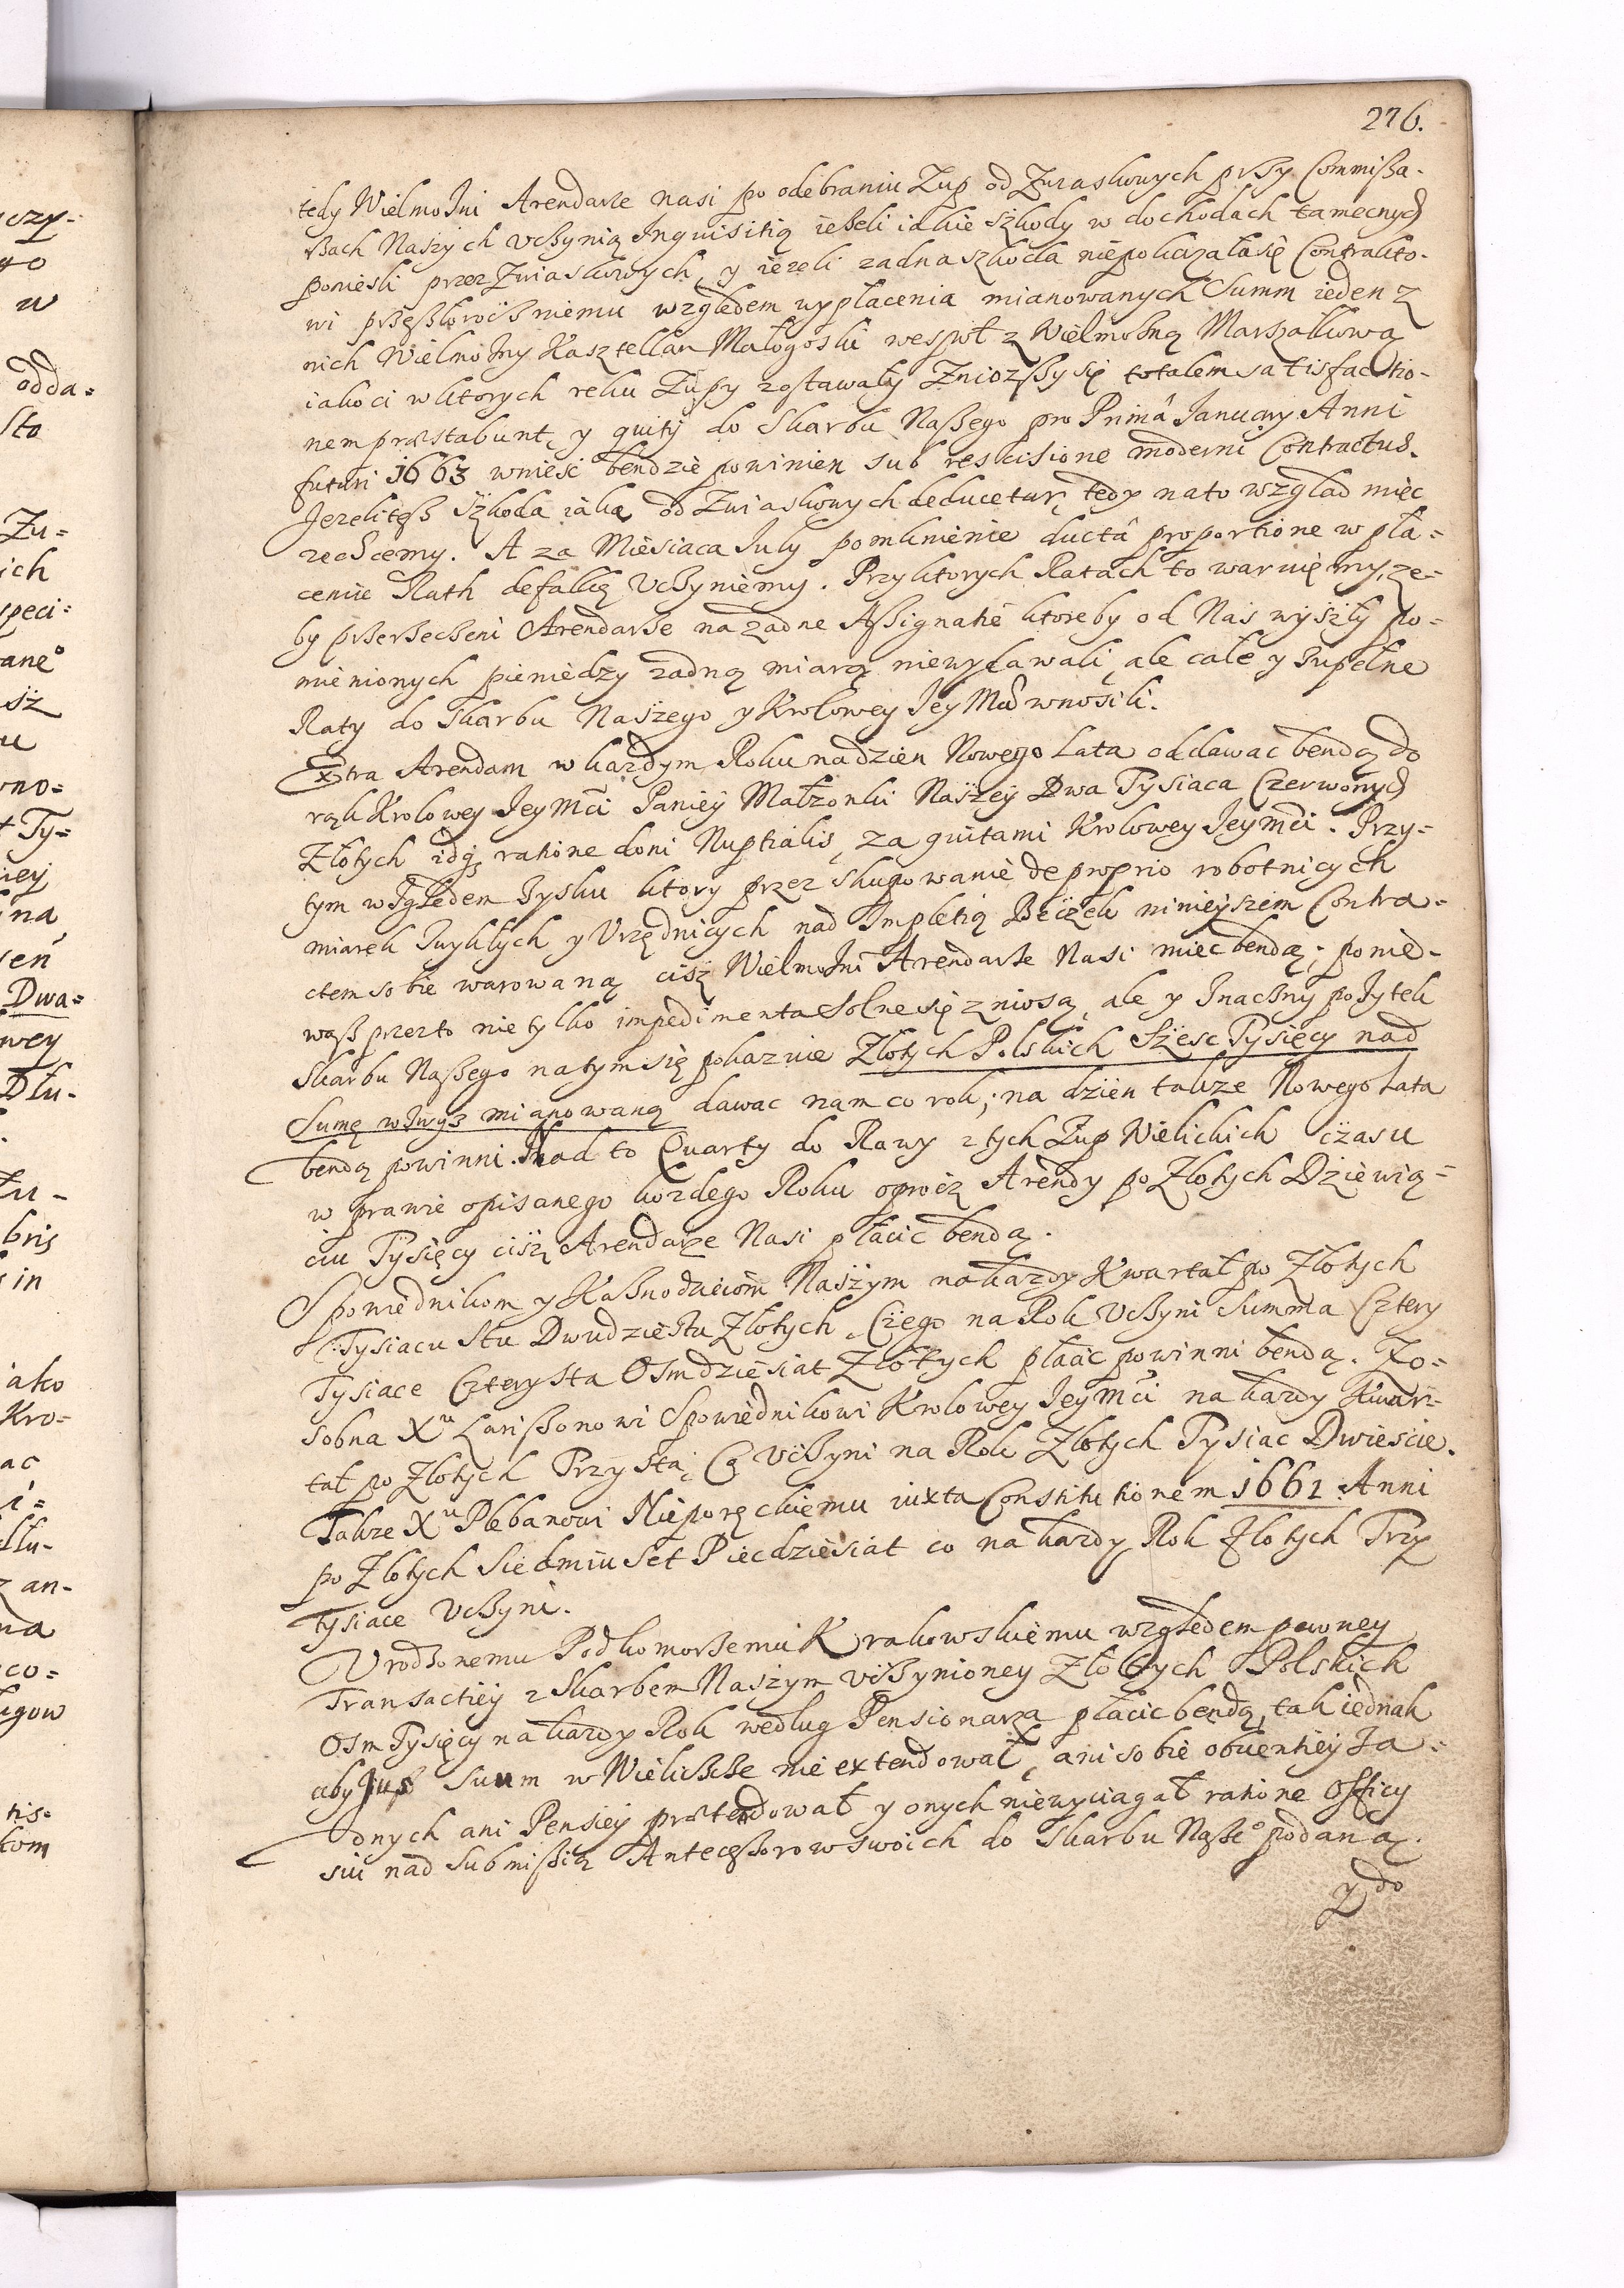 276.
tedy Wielmożni Arendarze nasi po odebraniu Żup od Zwiaskowych przy Commißa-
rßach Naszych vczynią Inquisitią ieżeli iakie szkody w dochodach tamecznych
ponieśli przez Zwiaskowych, y ieżeli żadna szkoda niepokazałasię Contrakto-
wi przeszłorocznemu względem wypłacenia mianowanych Summ ieden z
nich Wielmożny Kasztellan Małogoski wespoł z Wielmożną Marszałkową
iako ci w ktorych ręku Żupy zostawały Zniozszy się totalem satisfactio-
nem præstabunt, y quity do Skarbu Naßego pro Primâ January Anni
futuri 1663 wnieść bendzie powinien sub rescisione moderni Contractus.
Jezeliteß Szkoda iaka od Zwiaskowych deducetur, tedy na to wzgląd miec
zechcemy. A za Miesiaca July pomknienie ductâ proportione w pła=
ceniu Rath defalkę vczyniemy. Przyktorych Ratach to waruięmy, że-
by przerzeczeni Arendarze na żadne Assignatie ktoreby od Nas wyszły po=
mienionych pieniędzy żadną miarą niewydawali, ale całe y zupełne
Raty do Skarbu Naszego y Krolowey Jey Mci wnosili.
Extra Arendam w każdym Roku nadzien Nowego Lata oddawac bendą do
rąk Krolowey Jey Mci Paniey Małżonki Naszey Dwa Tysiaca Czerwonych
Złotych idq ratione doni Nuptialis, za quitami Krolowey Jey Mci. Przy=
tym względem zysku ktory przez skupowanie de proprio robotniczych
miarek zwykłych y Vrzędniczych nad Impletią Beczek ninieyszem Contra=
ctem sobie warowaną ciż Wielmożni Arendarze Nasi miec bendą; ponie-
waß przezto nietylko impedimenta Solne się zniosą, ale y znaczny pożytek
Skarbu Naßego natym się pokazuie Złotych Polskich Szesc Tysięcy nad
Sumę wzwyß mianowaną dawac nam co rok; na dzien także Nowego Lata
bendą powinni. Nad to Quarty do Rawy z tych Żup Wielickich czasu
w prawie opisanego kożdego Roku oprocz Arendy po Złotych Dziewią=
ciu Tysięcy ciż Arendarze Nasi płacic bendą.
Spowiednikom y Kaznodzieiom Naszym na każdy Kwartał po Złotych
Tysiacu Stu Dwudziestu Złotych, Czego na Rok vczyni Summa Cztery
Tysiace Czterysta Osmdziesiat Złotych płacic powinni bendą. Zo=
sobna Xu Larißonowi Spowiednikowi Krolowey Jey Mci na kazdy Kwar-
tał po Złotych Trzysta, Co vczyni na Rok Złotych Tysiac Dwiescie.
Takze Xu Plebanowi Nieporęckiemu iuxta Constitutionem 1661 Anni
po Złotych Siedmiuset Piecdziesiat co na kazdy Rok Złotych Trzy
tysiace vczyni.
Vrodzonemu Podkomorzemu Krakowskiemu względem pewney
Transactiey z Skarbem Naszym vczynioney Złotych Polskich
Osm Tysięcy na kazdy Rok według Pensionarza płacic bendą, tak iednak
aby Jus Suum w Wieliczce nie extendował, ani sobie obuentiey ża=
dnych ani Pensiey prætendował y onych niewyciągał ratione Officy
sui nad Submißią Antecessorow swoich do Skarbu Naßeo podaną.
y do